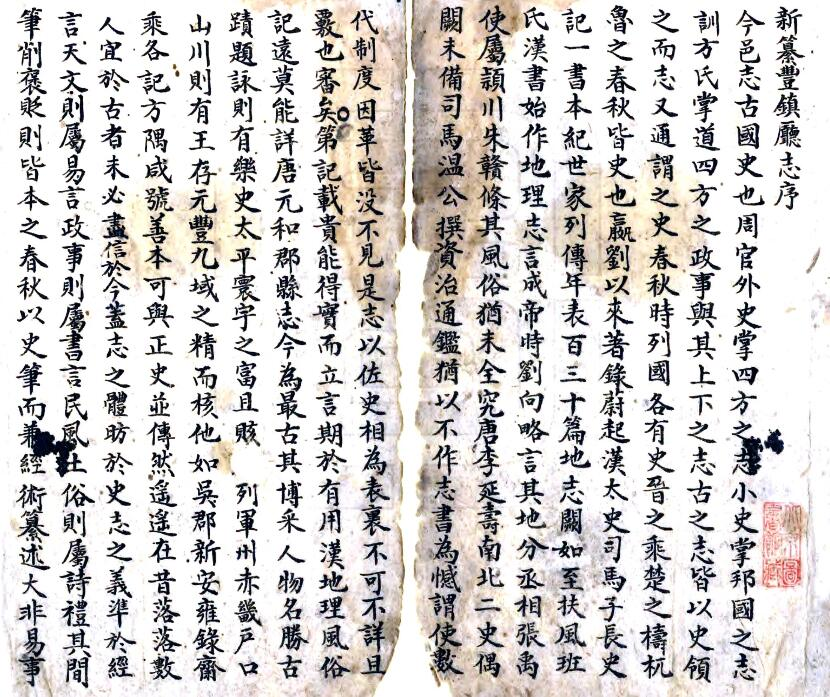 新纂豐鎮廳志序
今邑志古國史也周官外史掌四方之志小史掌邦國之志
訓方氏掌道四方之政事與其上下之志古之志皆以史領
之而志又通謂之史春秋時列國各有史晉之乘楚之檮杌
魯之春秋皆史也嬴劉以來著錄蔚起漢太史司馬子長史
記一書本紀世家列傳年表百三十篇地志闕如至扶風班
氏漢書始作地理志言成帝時劉向略言其地分丞相張禹
使屬潁川朱贛條其風俗猶未全究唐李延壽南北二史偶
闕未備司馬溫公撰資治通鑑猶以不作志書為憾謂使數
代制度因革皆没不見是志以佐史相為表裏不可不詳且
覈也審矣第記載貴能得實而立言期於有用漢地理風俗
記遠莫能詳唐元和郡縣志今為最古其博采人物名勝古
蹟題詠則有樂史太平寰宇之富且賅 列軍州赤畿戶口
山川則有王存元豐九域之精而核他如吳郡新安雍錄齋
乘各記方隅咸號善本可與正史並傳然遥遥在昔落落數
人宜於古者未必盡信於今蓋志之體昉於史志之義準於經
言天文則屬易言政事則屬書言民風土俗則屬詩禮其間
筆削褒貶則皆本之春秋以史筆而兼經術纂述大非易事